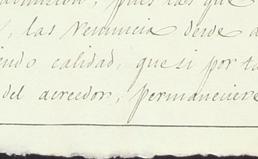 pues las que
, las renuncia desde a
endo calidad, que si por ta
del acreedor, permaneciere